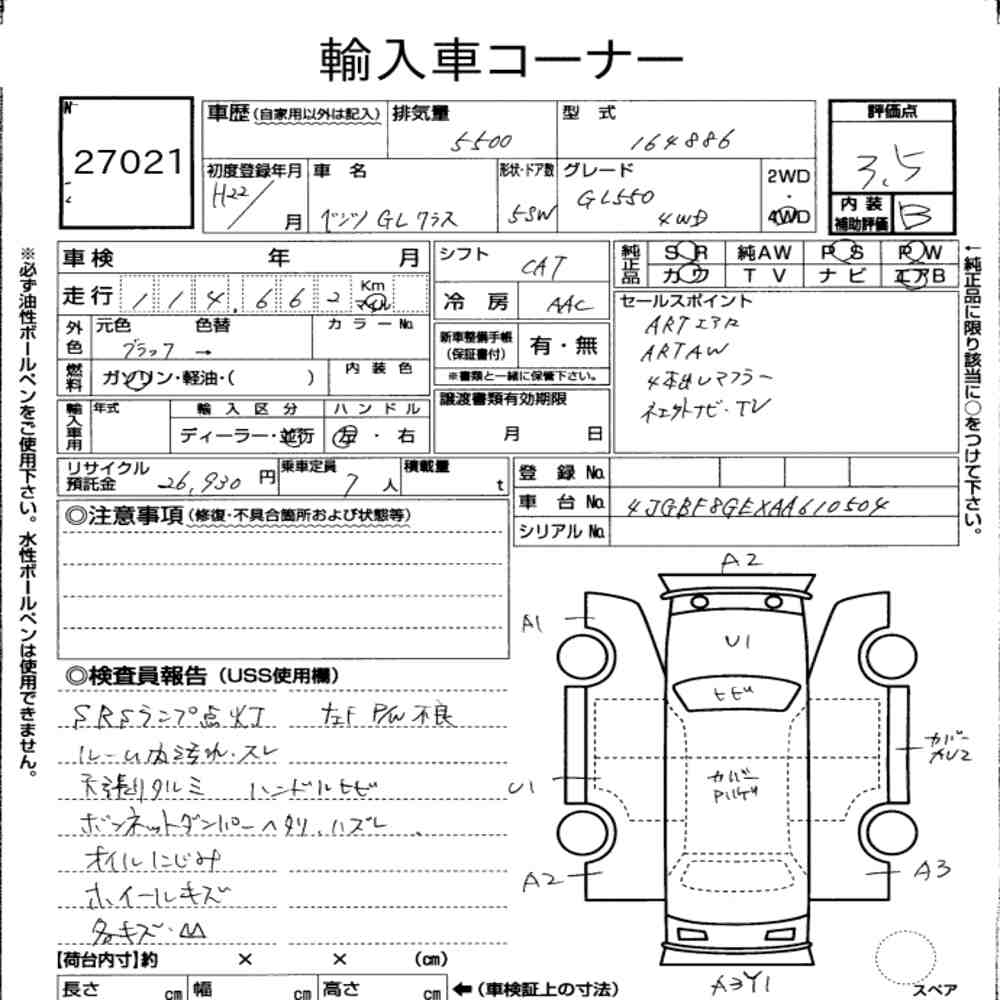 輸入車コーナー
No.
27021
車歴(自家用以外は記入) 排気量 5500 型 式 164886
評価点 3.5
初度登録年月 H22/ 月 車 名 ベンツ GLクラス 形状・ドア数 5SW グレード GL550 4WD 2WD ・ 4WD
内装補助評価 B
車検 年 月
走行 114,662 Km マイル
外色 元色 ブラック → 色替 カラーNo.
燃料 ガソリン・軽油・( ) 内装色
輸入車用 年式 輸入区分 ディーラー・並行 ハンドル 左・右
シフト CAT
冷房 AAC
新車整備手帳(保証書付) 有・無
※書類と一緒に保管下さい。
譲渡書類有効期限 月 日
純正品 SR 純AW PS PW
カワ TV ナビ エアB
セールスポイント
ARTエアロ
ARTAW
4本出しマフラー
ナビ・TV
リサイクル預託金 26,930円 乗車定員 7人 積載量 t
登録No.
車台No. 4JGBF8GEXAA610504
シリアルNo.
◎注意事項(修復・不具合箇所および状態等)
◎検査員報告(USS使用欄)
SRSランプ点灯 左F P/W不良
ルーム内汚れ・スレ
天張りタルミ ハンドルヒビ
ボンネットダンパーヘタリ、ハズレ
オイルにじみ
ホイールキズ
各キズ・凹
【荷台内寸】約 × × (cm)
長さ cm 幅 cm 高さ cm ←(車検証上の寸法)
A2
A1
U1
ヒビ
カバー
カバー AU2
U1
A2
A3
A3Y1
スペア
※必ず油性ボールペンをご使用下さい。水性ボールペンは使用できません。
←純正品に限り該当に○をつけて下さい。